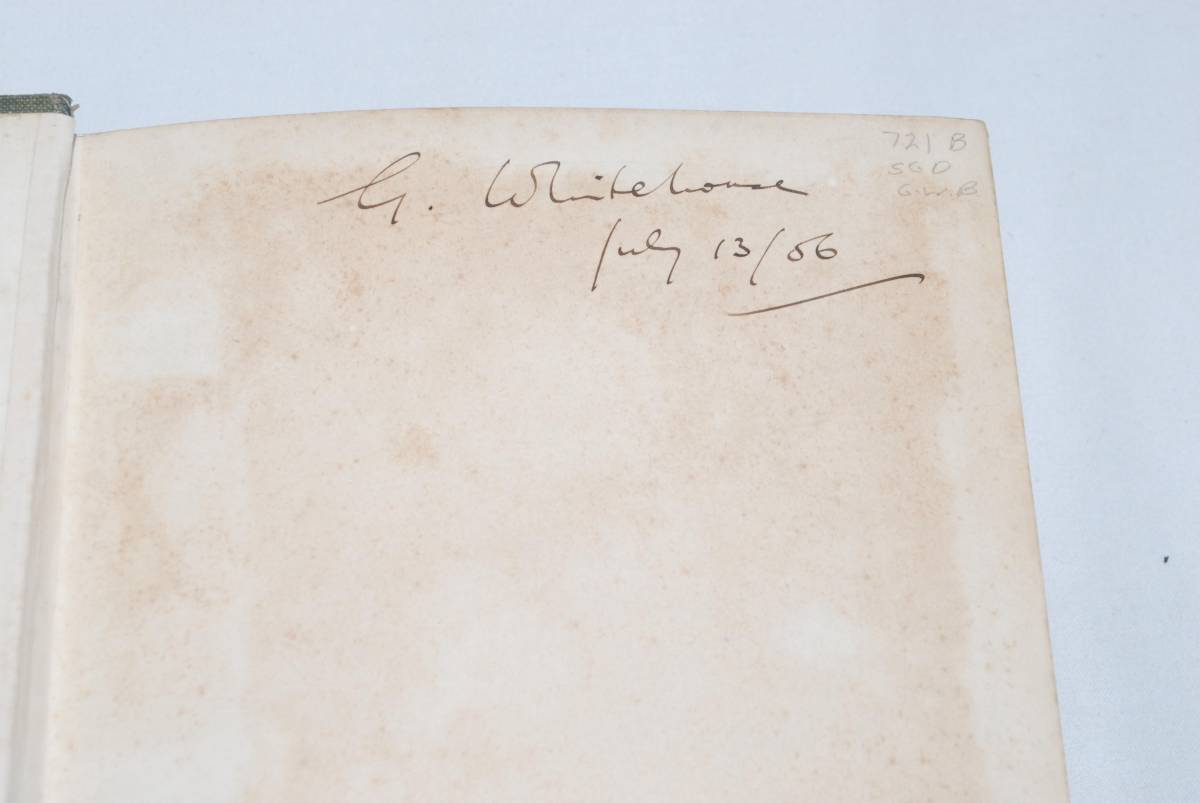 G. Whitehouse
July 13/06
721 B
SGD
G.W.B